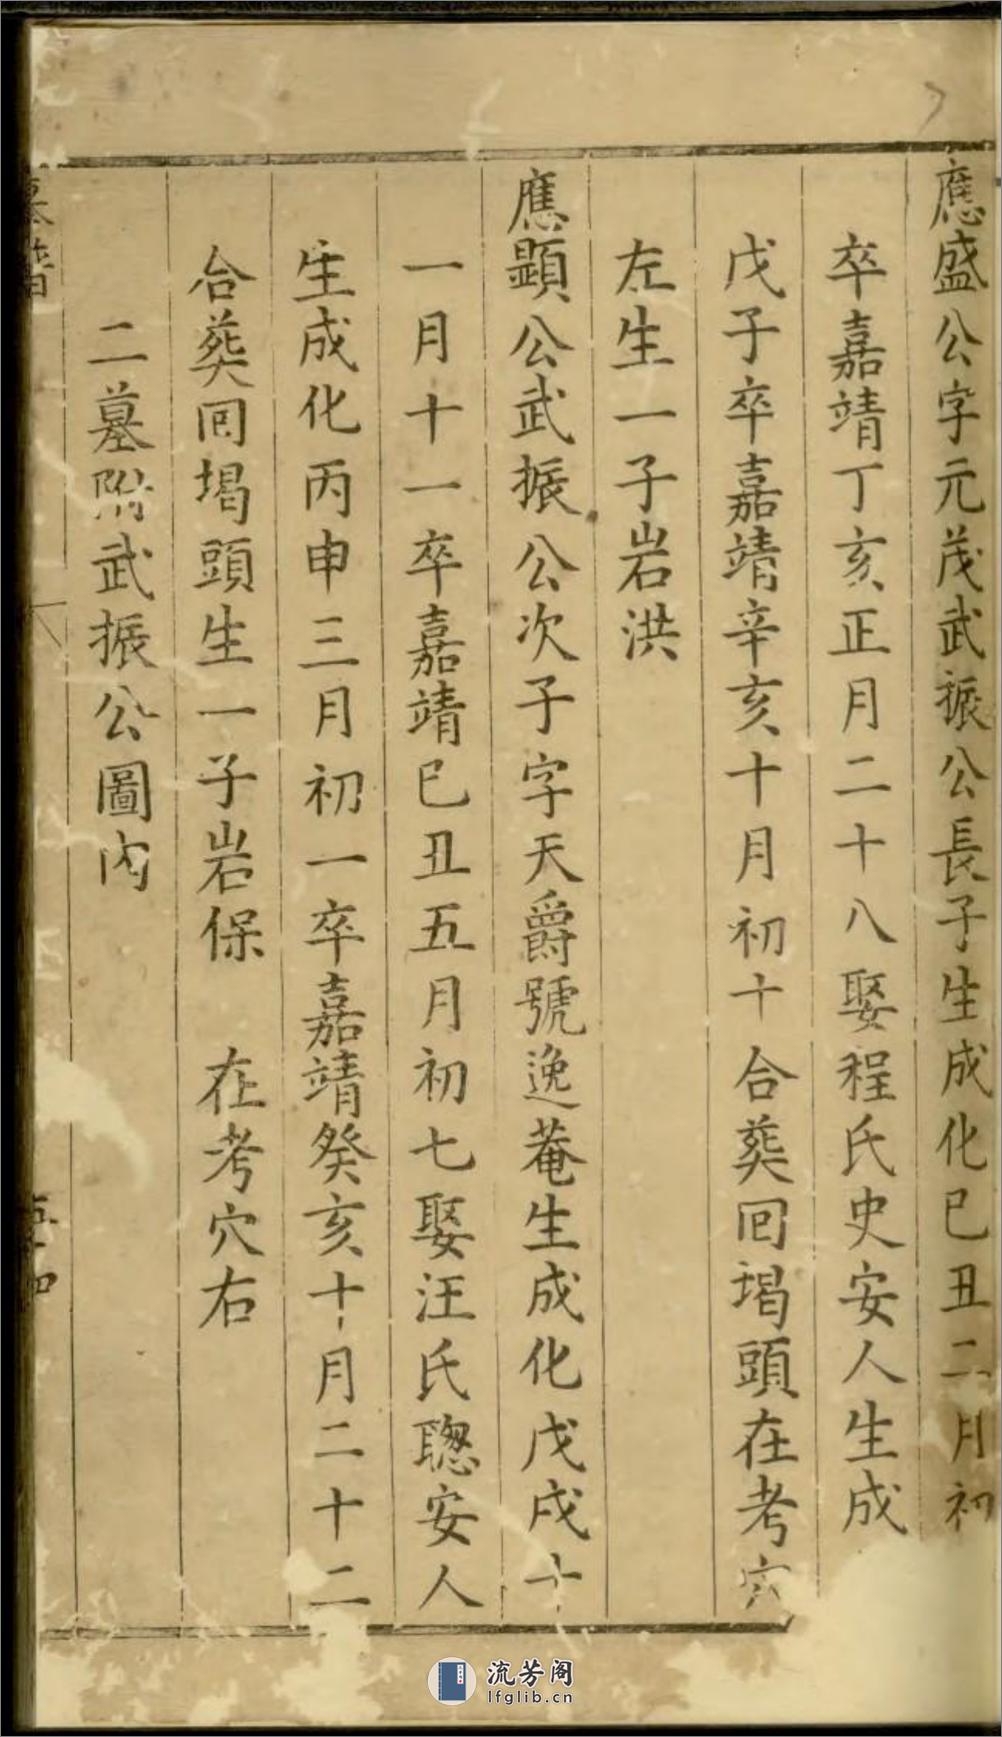 應盛公字元茂武振公長子生成化已丑二月初
卒嘉靖丁亥正月二十八娶程氏史安人生成
戊子卒嘉靖辛亥十月初十合葬囘堨頭在考穴
左生一子岩洪
應顯公武振公次子字天爵號逸菴生成化戊戌十
一月十一卒嘉靖已丑五月初七娶汪氏聰安人
生成化丙申三月初一卒嘉靖癸亥十月二十二
合葬囘堨頭生一子岩保　在考穴右
二墓附武振公圖內
流芳阁
lfglib.cn